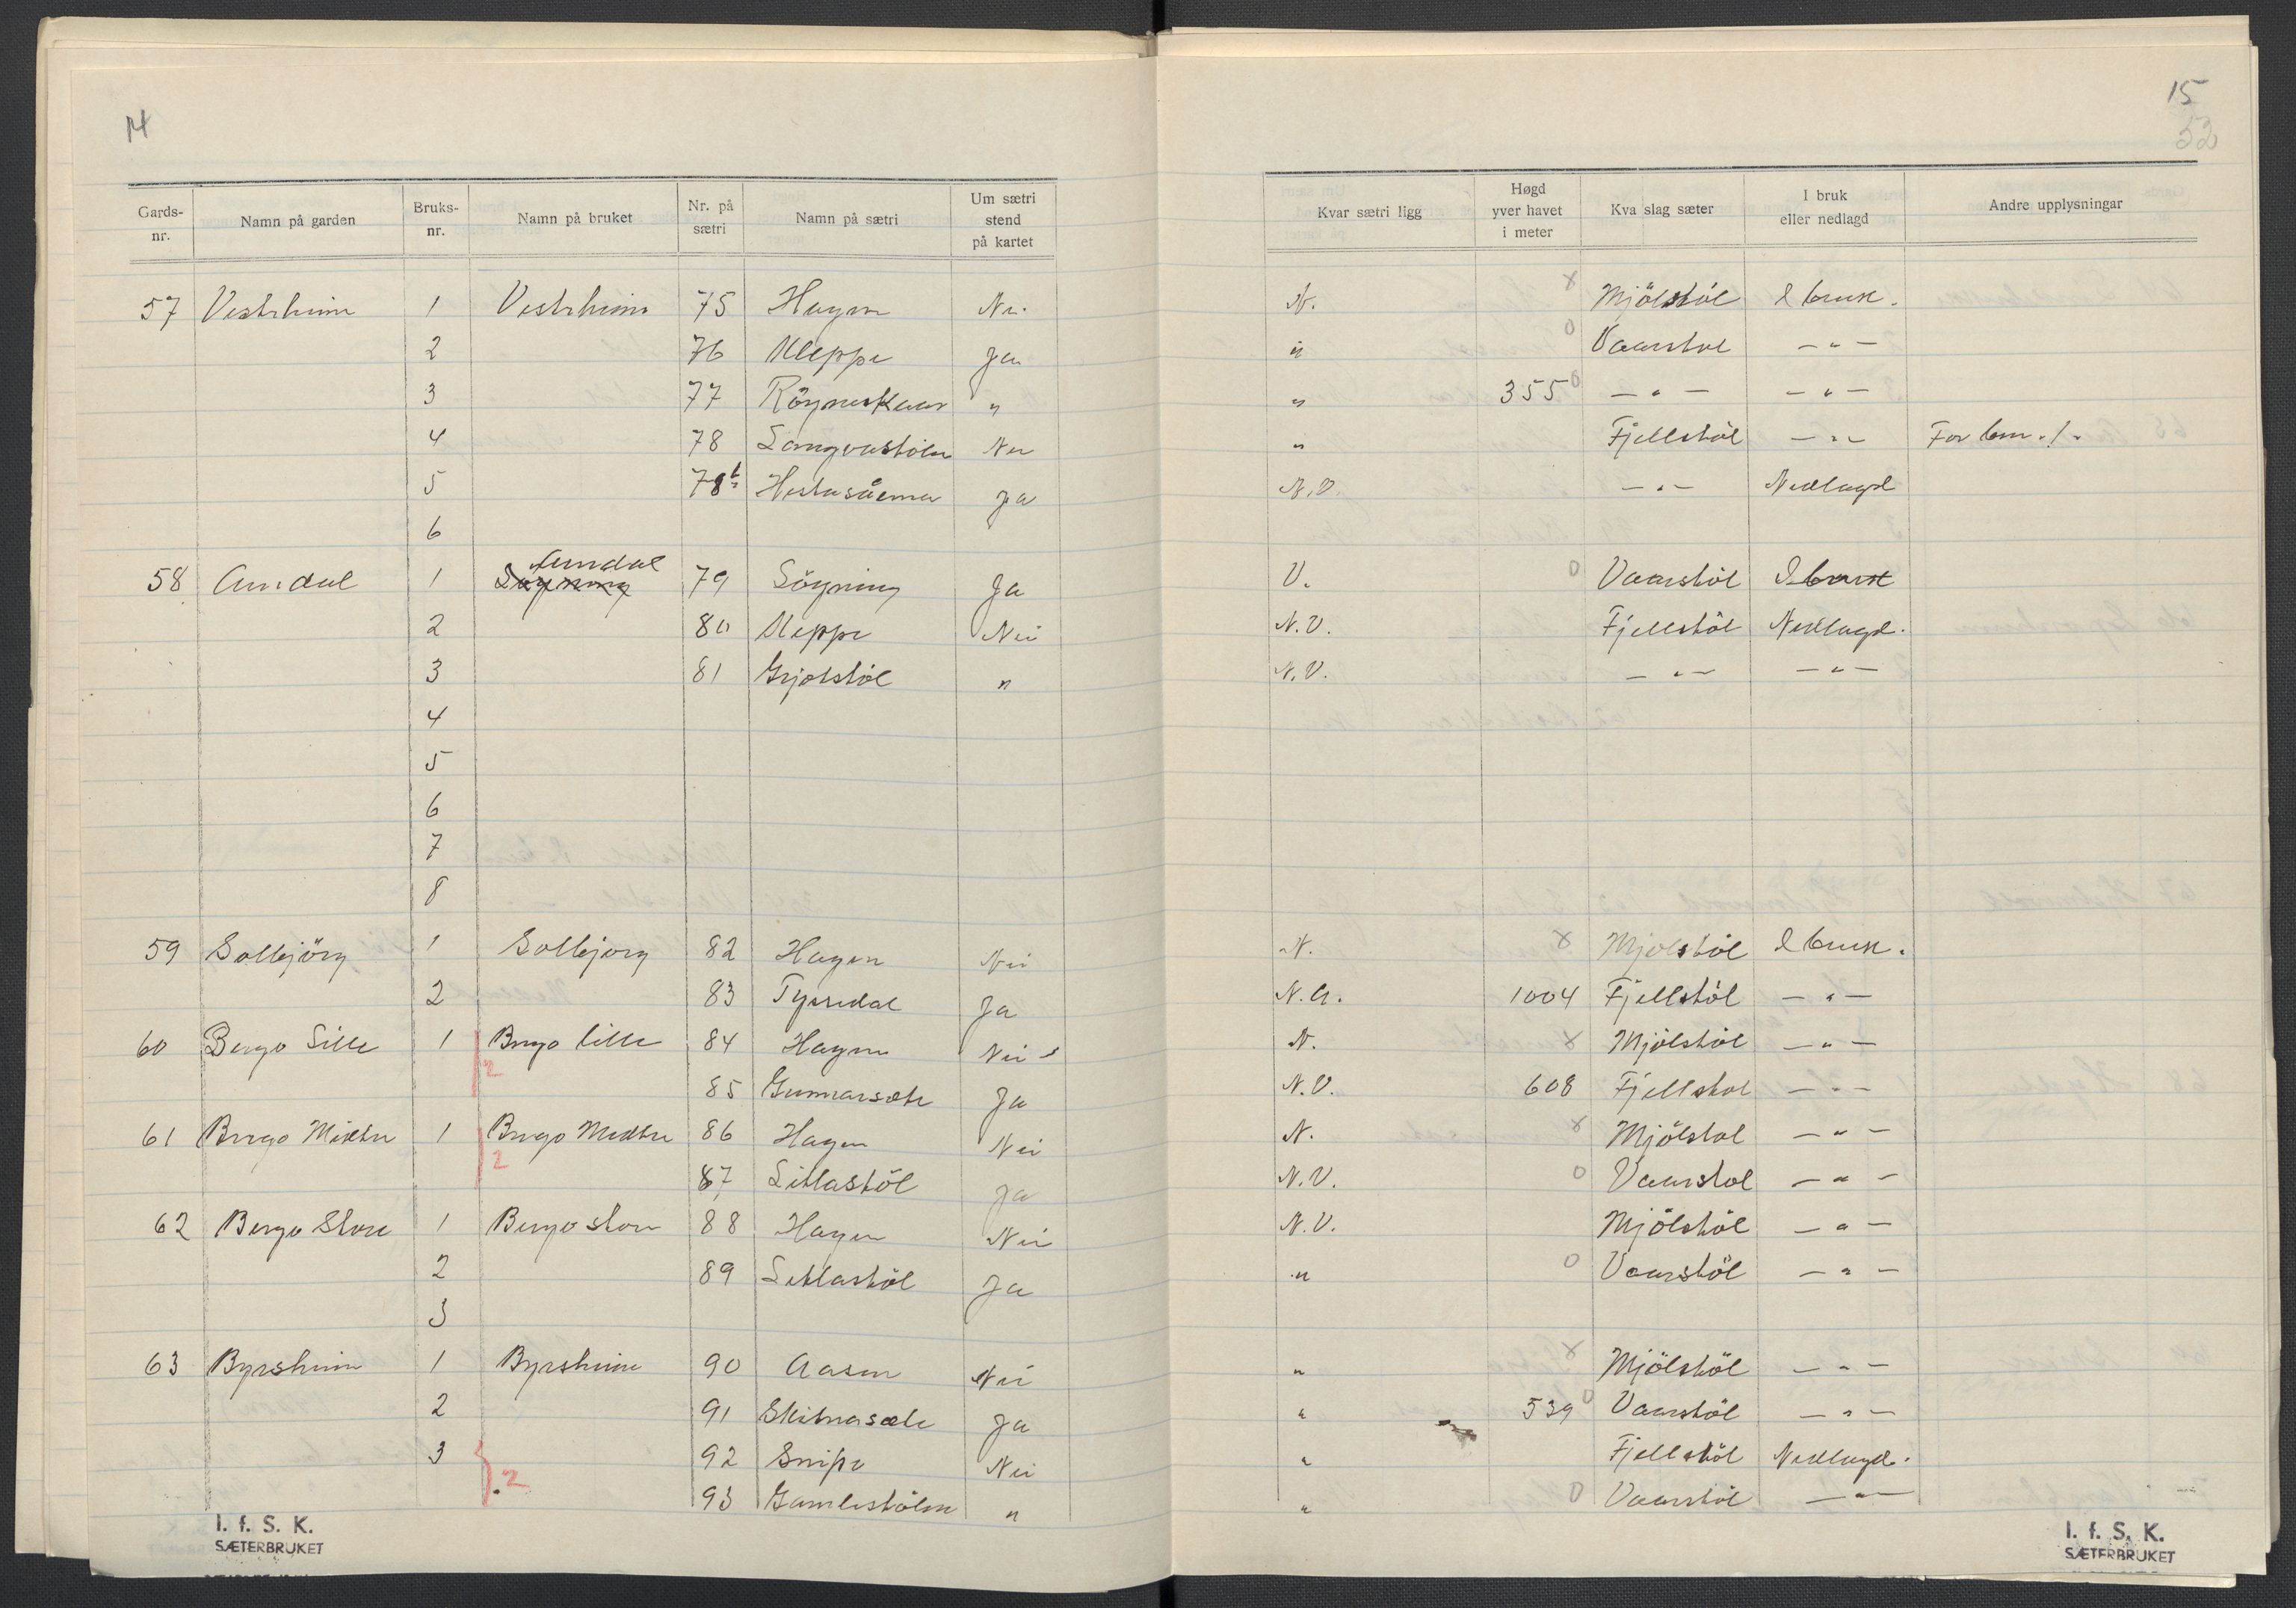 14
Gards-nr. Namn på garden Bruks-nr. Namn på bruket Nr. på sætri Namn på sætri Um sætri stend på kartet
57 Vestrheim 1 Vestrheim 75 Hagen Nei
2 76 Kleppe Ja
3 77 Rögneskaar "
4 78 Langvastölen Nei
5 78b Ja
6
58 Arndal 1 Arndal 79 Sögning Ja
2 80 Kleppe Nei
3 81 Grjotstöl "
4
5
6
7
8
59 Solbjörg 1 Solbjorg 82 Hagen Nei
2 83 Tyssedal Ja
60 Bergo Litle 1 Bergo litle 84 Hagen Nei
2 85 Gunnarsæte Ja
61 Bergo Midtre 1 Bergo Midtre 86 Hagen Nei
2 87 Litlastöl Ja
62 Bergo Store 1 Bergo store 88 Hagen Nei
2 89 Litlastöl Ja
3
63 Byrsheim 1 Byrsheim 90 Aasen Nei
2 91 Ja
3 92 Snipe Nei
2 93 Gamlestölen "
I. f. S. K.
SÆTERBRUKET
15
52
Kvar sætri ligg Høgd yver havet i meter Kva slag sæter I bruk eller nedlagd Andre upplysningar
N. x Mjölstöl I bruk.
" 0 Vaarstöl — " —
" 355 0 — " — — " —
" Fjellstöl — " — For bnr. 1.
N.V. — " — Nedlagd
V. 0 Vaarstöl I bruk
N.V. Fjellstöl Nedlagd.
N.V. — " — — " —
N. x Mjölstöl I bruk.
N.A. 1004 Fjellstöl — " —
N. x Mjölstöl — " —
N.V. 608 Fjellstöl — " —
N. x Mjölstöl — " —
N.V. 0 Vaarstol — " —
N.V. Mjölstöl — " —
" 0 Vaarstöl — " —
" x Mjölstöl — " —
" 539 0 Vaarstöl — " —
" Fjellstöl Nedlagd.
" 0 Vaarstöl — " —
I. f. S. K.
SÆTERBRUKET